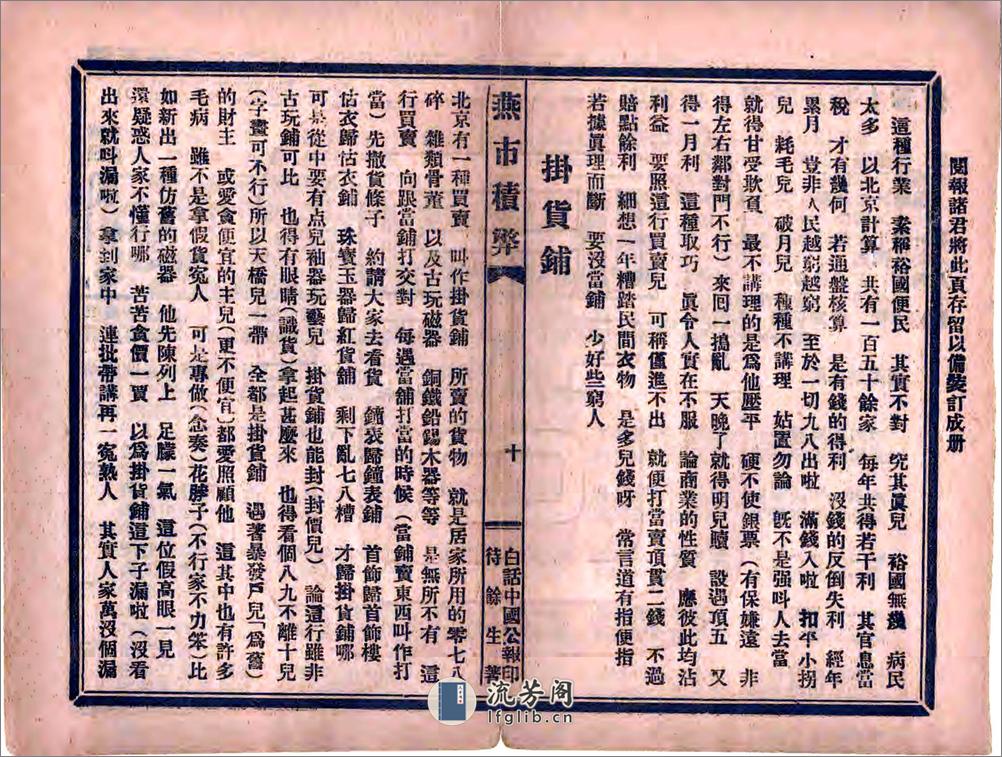 閱報諸君將此頁存留以備裝訂成册
這種行業 素稱裕國便民 其實不對 究其眞兒 裕國無幾 病民
太多 以北京計算 共有一百五十餘家 每年共得若干利 其官息當
稅 才有幾何 若通盤核算 是有錢的得利 沒錢的反倒失利 經年
累月 豈非人民越窮越窮 至於一切九八出啦 滿錢入啦 扣平小拐
兒 耗毛兒 破月兒 種種不講理 姑置勿論 旣不是强呌人去當
就得甘受欺負 最不講理的是爲他壓平 硬不使銀票（有保嫌遠 非
得左右鄰對門不行）來回一搗亂 天晚了就得明兒贖 設遇頂五 又
得一月利 這種取巧 眞令人實在不服 論商業的性質 應彼此均沾
利益 要照這行買賣兒 可稱僅進不出 就便打當賣頂貫二錢 不過
賠點餘利 細想一年糟踏民間衣物 是多兒錢呀 常言道有指便指
若據眞理而斷 要沒當鋪 少好些窮人
掛貨鋪
燕市積弊
十
白話中國公報印
待餘生著
北京有一種買賣 呌作掛貨鋪 所賣的貨物 就是居家所用的零七八
碎 雜類骨董 以及古玩磁器 銅鐵鉛錫木器等等 是無所不有 這
行買賣 向跟當鋪打交對 每遇當舖打當的時候（當鋪賣東西呌作打
當）先撒貨條子 約請大家去看貨 鐘表歸鐘表鋪 首飾歸首飾樓
估衣歸估衣鋪 珠寶玉器歸紅貨舖 剩下亂七八糟 才歸掛貨鋪哪
可是從中要有点兒秞器玩藝兒 掛貨鋪也能封（封價兒）論這行雖非
古玩鋪可比 也得有眼睛（識貨）拿起甚麼來 也得看個八九不離十兒
（字畫可不行）所以天橋兒一帶 全都是掛貨鋪 遇著暴發戶兒（爲富）
的財主 或愛貪便宜的主兒（更不便宜）都愛照顧他 這其中也有許多
毛病 雖不是拿假貨寃人 可是專做（念奏）花脖子（不行家不力笨）比
如新出一種仿舊的磁器 他先陳列上 足朦一氣 這位假高眼一見
還疑惑人家不懂行哪 苦苦貪價一買 以爲掛貨鋪這下子漏啦（沒看
出來就呌漏啦）拿到家中 連批帶講再一寃熟人 其實人家萬沒個漏
流芳阁
lfglib.cn